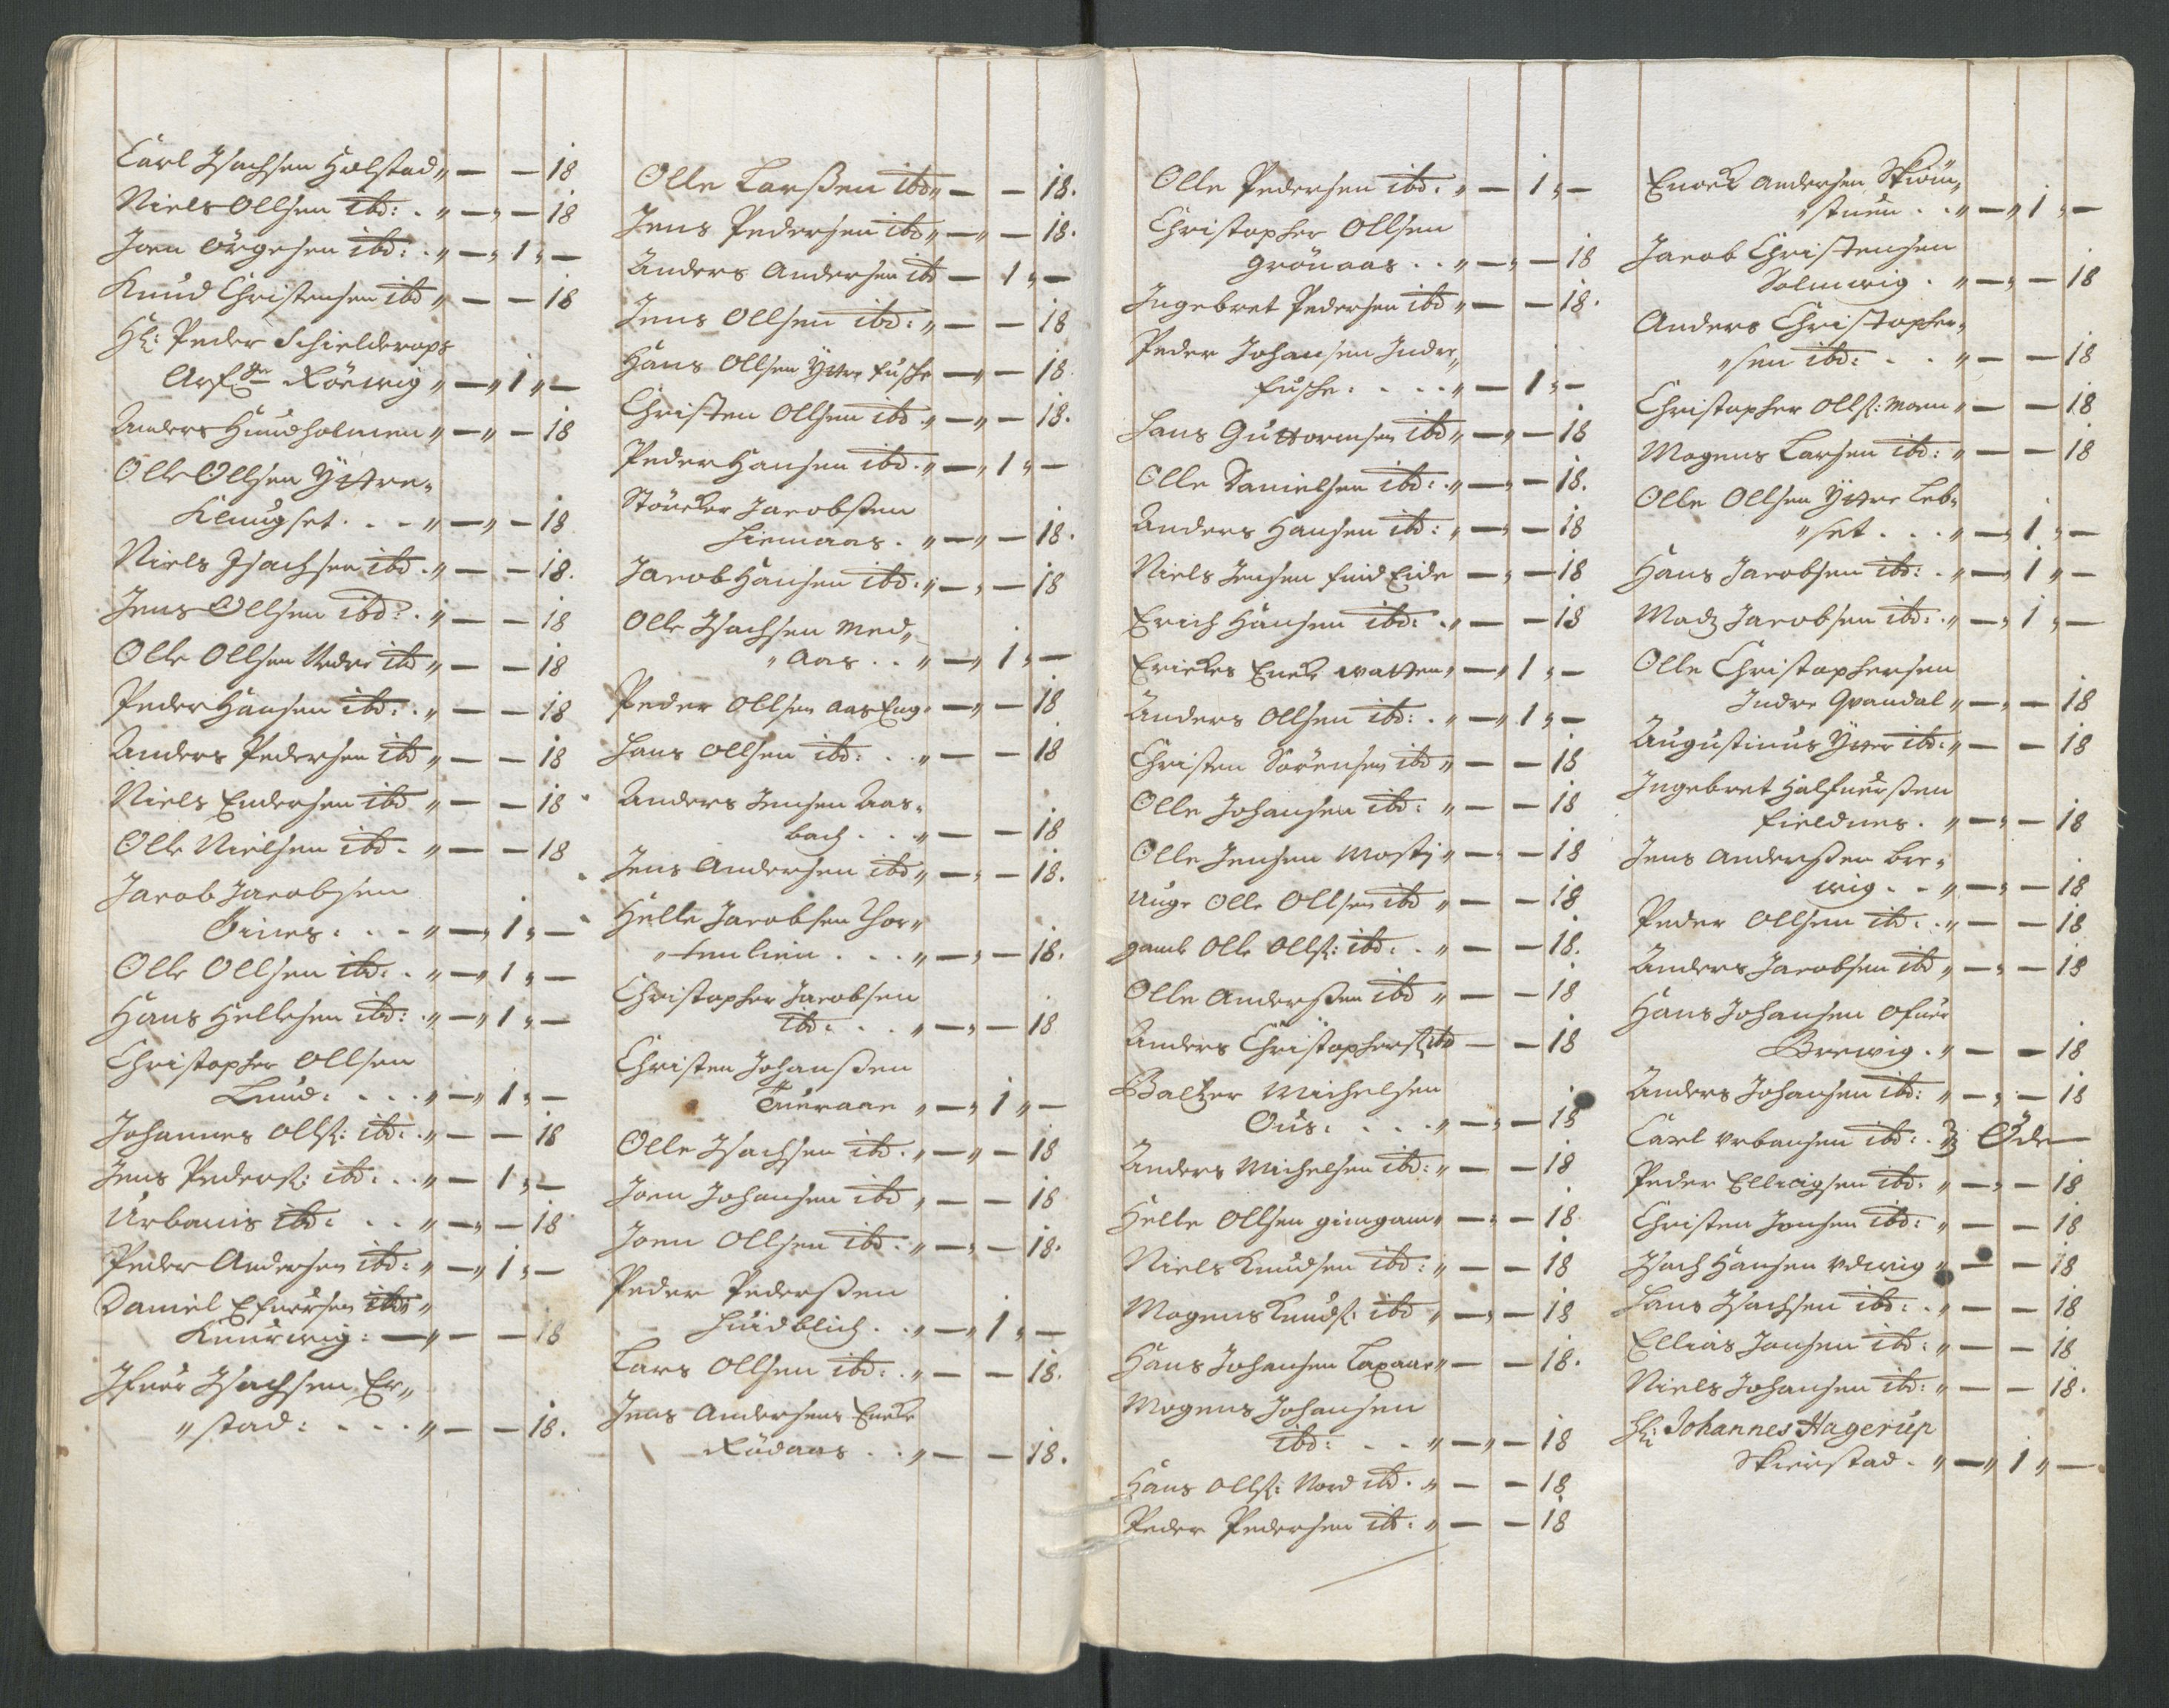 Carl Jsachsen Halstad „ — — 18
Niels Ollsen ibd: . „ — „ — 18
Joen Örgesen ibd: . „ — „ 1 „ —
Knud Christensen ibd „ — — 18
Hr: Peder Schielderops
Arf Röevig „ — „ 1 „ —
Anders Hundholmen „ — „ — 18
Olle Ollsen Yttre
Klungset . . - „ — „ — 18
Niels Jsachsen ibd . „ — — 18.
Jens Ollsen ibd: . „ — — 18
Olle Ollsen Nedre ibd „ — — 18
Peder Hansen ibd: . „ — — 18
Anders Pedersen ibd „ — — 18
Niels Endersen ibd „ — — 18
Olle Nielsen ibd . „ — — 18
Jacob Jacobsen
Öines . . - „ — „ 1 „ —
Olle Ollsen ibd: . „ — „ 1 „ —
Hans Hellesen ibd: . „ — „ 1 „ —
Christopher Ollsen
Lund: . . . „ — „ 1 „ —
Johannes Ollß: ibd: . „ — — 18
Jens Pederß: ibd: . . „ — 1 „ —
Urbanis ibd: . . „ — „ — 18
Peder Andersen ibd: „ — „ 1 „ —
Daniel Efuersen ibd: „
Knurvig: — „ — — 18
Jfuer Jsachsen Er„
„stad: . . . „ — — 18.
Olle Larßen ibd „ — — 18.
Jens Pedersen ibd „ — „ — 18.
Anders Andersen ibd — 1 „ —
Jens Ollsen ibd: „ — — 18
Hans Ollsen Yttre Fuske — „ — 18
Christen Ollsen ibd . „ — „ — 18.
Peder Hansen ibd . „ — „ 1 „ —
Jacobsen
. „ — „ — 18.
Jacob Hansen ibd: „ — „ — 18
Olle Jsachsen Med„
„Aas . . „ — „ 1 „ —
Peder Ollsen Aas Eng . — „ — 18
Hans Ollsen ibd: . . „ — — 18
Anders Jensen Aas„
bach . . „ — — 18
Jens Andersen ibd „ — „ — 18.
Helle Jacobsen Thor„
„stenlien . . . „ — „ — 18.
Christopher Jacobsen
ibd: . . „ — „ — 18
Christen Johanßen
Tueraae „ — „ 1 „ —
Olle Jsachsen ibd . „ — „ — 18
Joen Johansen ibd „ — — 18
Joen Ollsen ibd: „ — „ — 18.
Peder Pederßen
Huidblich . . „ — „ 1 „ —
Lars Ollsen ibd: . „ — — 18.
Jens Andersens Encke
Rödaas . . „ — — 18.
Olle Pedersen ibd: „ — 1 „ —
Christopher Ollsen
Grönaas . . „ — „ — 18
Ingebret Pedersen ibd „ — — 18.
Peder Johansen Indre„
Fuske . . . . „ — 1 „ —
Hans Guttormsen ibd „ — „ — 18
Olle Danielsen ibd: . „ — „ — 18.
Anders Hansen ibd: „ — „ — 18
Niels Jensen Finid Eide — „ — 18
Erich Hansen ibd: . „ — — 18
Erickes Enck Vatten „ — „ 1 „ —
Anders Ollsen ibd: . „ — „ 1 „ —
Christen Sörensen ibd „ — — 18
Olle Johansen ibd: „ — — 18
Olle Jensen Mosti „ — „ — 18
Unge Olle Ollsen ibd „ — — 18
gamle Olle Ollß: ibd: . „ — — 18.
Olle Anderßen ibd „ — — 18
Anders Christopherß: ibd — — 18
Baltzer Michelsen
Ous: . . . „ — „ — 18
Anders Michelsen ibd: „ — — 18
Helle Ollsen Gimgam „ — „ — 18
Niels Knudsen ibd: „ — — 18
Mogens Knudß: ibd „ — „ — 18
Hans Johansen Lapaae „ — — 18.
Mogens Johansen
ibd: . . „ — „ — 18
Hans Ollß: Nord ibd . „ — — 18
Peder Pedersen ib: „ — — 18
Enock Andersen Skiöm„
„stuen . . „ — „ 1 „ —
Jacob Christensen
Solmvig . „ — „ — 18
Anders Christopher„
„sen ibd: . . „ — — 18
Christopher Ollß: Moen „ — — 18
Mogens Larsen ibd: „ — — 18
Olle Ollsen Yttre Leb„
„set . . . „ — „ 1 „ —
Hans Jacobsen ibd: . „ — „ 1 „ —
Madz Jacobsen ibd: . „ — „ 1 „ —
Olle Christophersen
Indre Qvandal „ — „ — 18
Augustinus Yttre ibd: „ — — 18
Ingebret Halfuorßen
Fieldnes . „ — „ — 18
Jens Anderßen Bre„
vig . . „ — „ — 18
Peder Ollsen ib: . „ — — 18
Anders Jacobsen ibd „ — „ — 18
Hans Johansen Ofuer
Brevig . „ — — 18
Anders Johansen ibd: „ — „ — 18
Carl Urbansen ibd: . Öde —
Peder Ellingsen ibd: „ — „ — 18
Christen Jensen ibd: „ — — 18
Jsach Hansen Udvig „ — — 18
Hans Jsachsen ibd: . „ — — 18
Ellias Jonsen ib: „ — — 18
Niels Johansen ibd: „ — — 18.
Hr: Johannes Hagerup
Skierstad . „ — „ 1 „ —